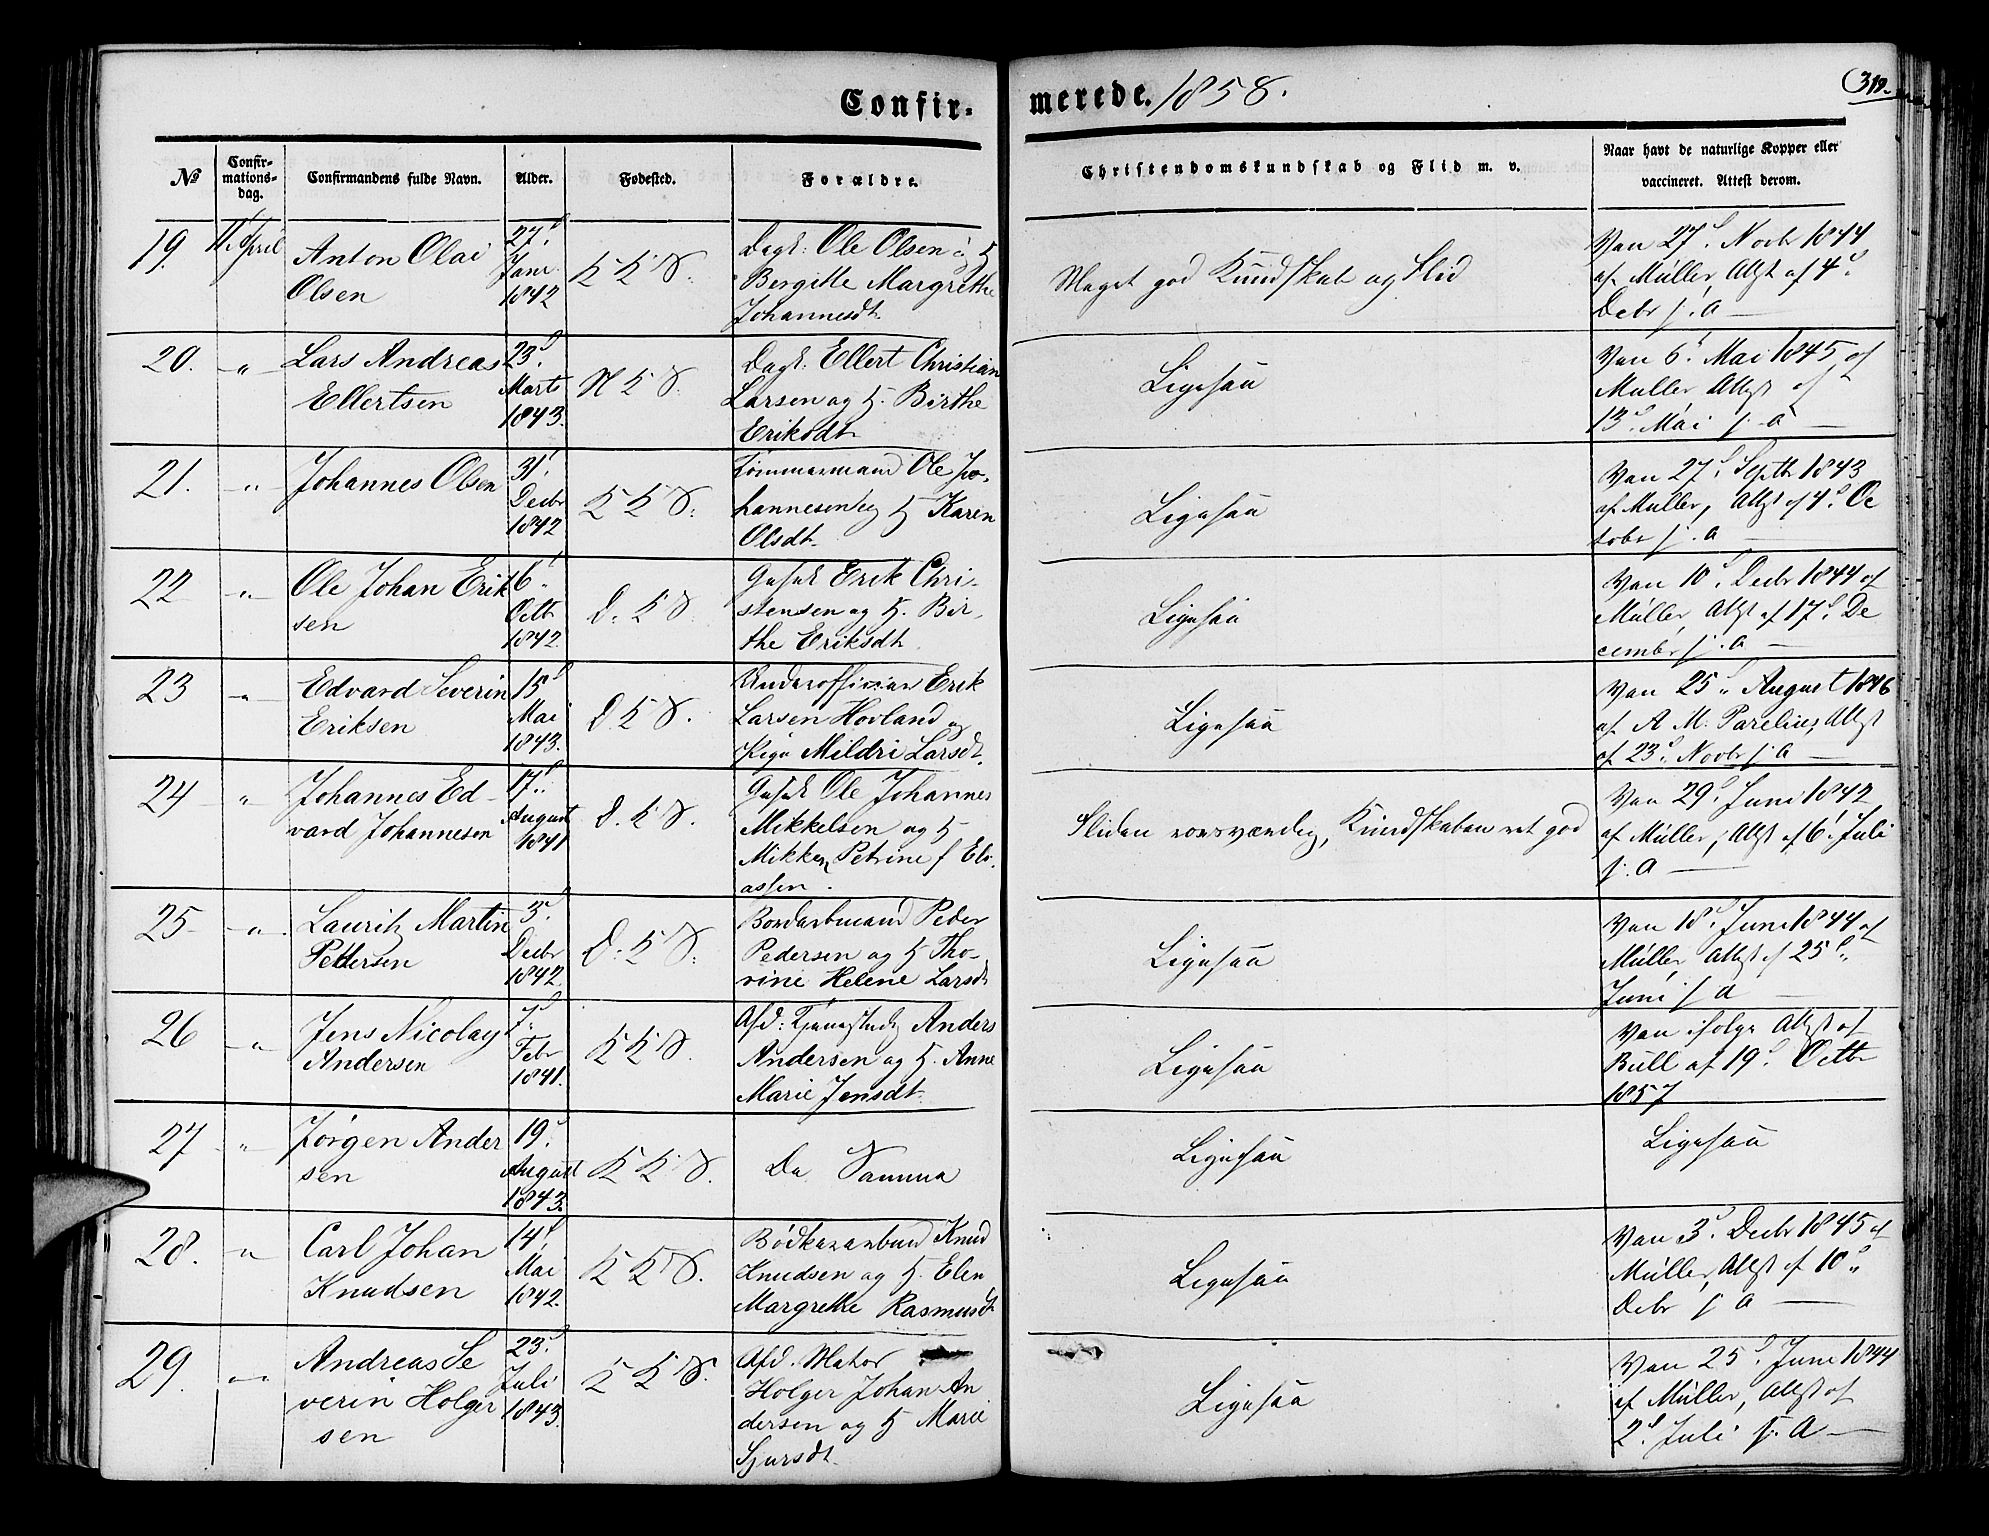 Confir-
merede. 1858.
312.
No
Confir-
mations-
dag.
Confirmandens fulde Navn.
Alder.
Fødested.
Forældre.
Christendomskundskab og Flid m. v.
Naar havt de naturlige Kopper eller
vaccineret. Attest derom.
19.
11. April
Anton Olai
Olsen
27d.
Janr
1842
K K S.
Dagk: Ole Olsen og H
Bergitte Margrethe
Johannesdt.
Meget god Kundskab og Flid
Van 27d. Novbr 1844
af Müller, Attst af 4d.
Debr s. a
20.
"
Lars Andreas
Ellertsen
23d.
Marts
1843.
N K S.
Dagk: Ellert Christian
Larsen og H. Birthe
Eriksdt
Ligesaa
Van 6t. Mai 1845 af
Müller, Attst af
13d. Mai s. a
21.
"
Johannes Olsen
31t.
Decbr
1842
K K S.
Tømmermand Ole Jo-
hannesen og H Karen
Olsdt.
Ligesaa
Van 27d. Septbr 1843
af Müller, Attst af 4d. Oc
tobr s. a
22
"
Ole Johan Erik
sen
6t.
Octb
1842.
D. K S.
Erik Chri-
stensen og H. Bir-
the Eriksdt.
Ligesaa
Van 10d. Decbr 1844 af
Müller, Attst af 17d. De
cembr s. a
23
"
Edvard Severin
Eriksen
15d
Mai
1843.
D. K S.
Underofficier Erik
Larsen Hovland og
Pige Mildri Larsdt.
Ligesaa
Van 25d. August 1846
af A M. Parelius, Attst
af 23d. Novbr s. a
24
"
Johannes Ed-
vard Johannesen
17d.
August
1841
D. K S.
Ole Johannes
Mikkelsen og H
Petrine f Eli-
assen.
Fliden roesværdig, Kundskaben ret god
Van 29d. Juni 1842
af Müller, Attst af 6t. Juli
s. a
25
"
Lauritz Martin
Pettersen
3d.
Decbr
1842.
D. K S.
Peder
Pedersen og H Tho-
rine Helene Larsdt
Ligesaa
Van 18d. Juni 1844 af
Müller Attst af 25d.
Juni s a
26
"
Jens Nicolay
Andersen
7d.
Febr
1841.
K K S.
Afd: Anders
Andersen og H. Anne
Marie Jensdt.
Ligesaa
Van ifølge Attst af
Bull af 19d. Octb
1857
27
"
Jørgen Ander
sen
19d.
August
1843.
K K S.
De Samme
Ligesaa
Ligesaa
28.
"
Carl Johan
Knudsen
14d.
Mai
1842.
K K S.
Bødkerarbeid Knud
Knudsen og H. Elen
Margrethe Rasmusdt
Ligesaa
Van 3d. Decbr 1845 af
Müller, Attst af 10d.
Debr s a
29.
"
Andreas Se
verin Holger
sen
23d.
Juli
1843.
K K S.
Afd. Mator
Holger Johan An
dersen og H Marie
Sjursdt.
Ligesaa
Van 25d. Juni 1844
af Müller, Attst af
2d. Juli s. a